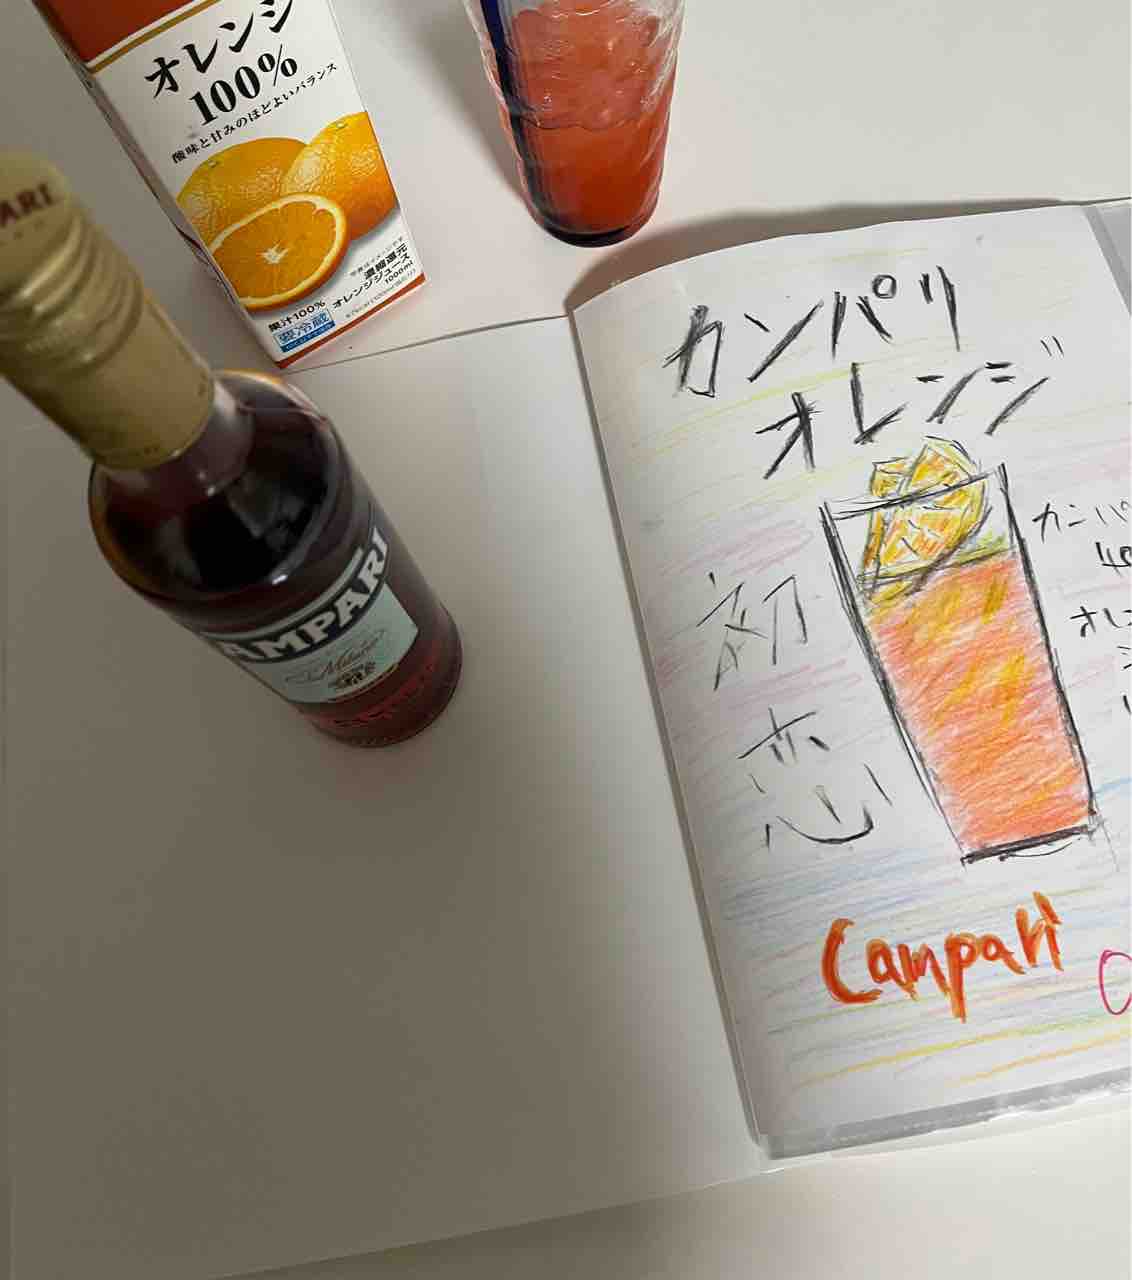 オレンジ
100%
酸味と甘みのほどよいバランス
濃縮還元
オレンジジュース
1000ml
果汁100%
要冷蔵
CAMPARI
Milano
カンパリ
オレンジ
初
恋
Campari